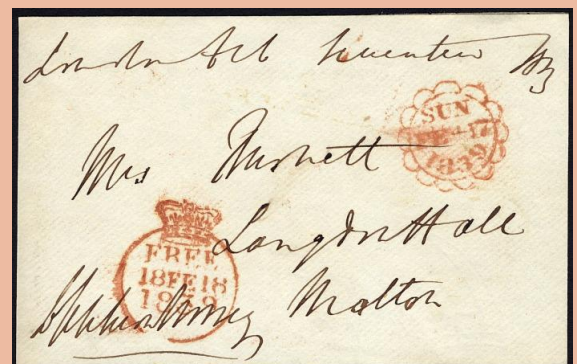 London Feb seventeen
SUN
17
1839
Mrs
Langton Hall
FREE
18FE18
1839
Malton